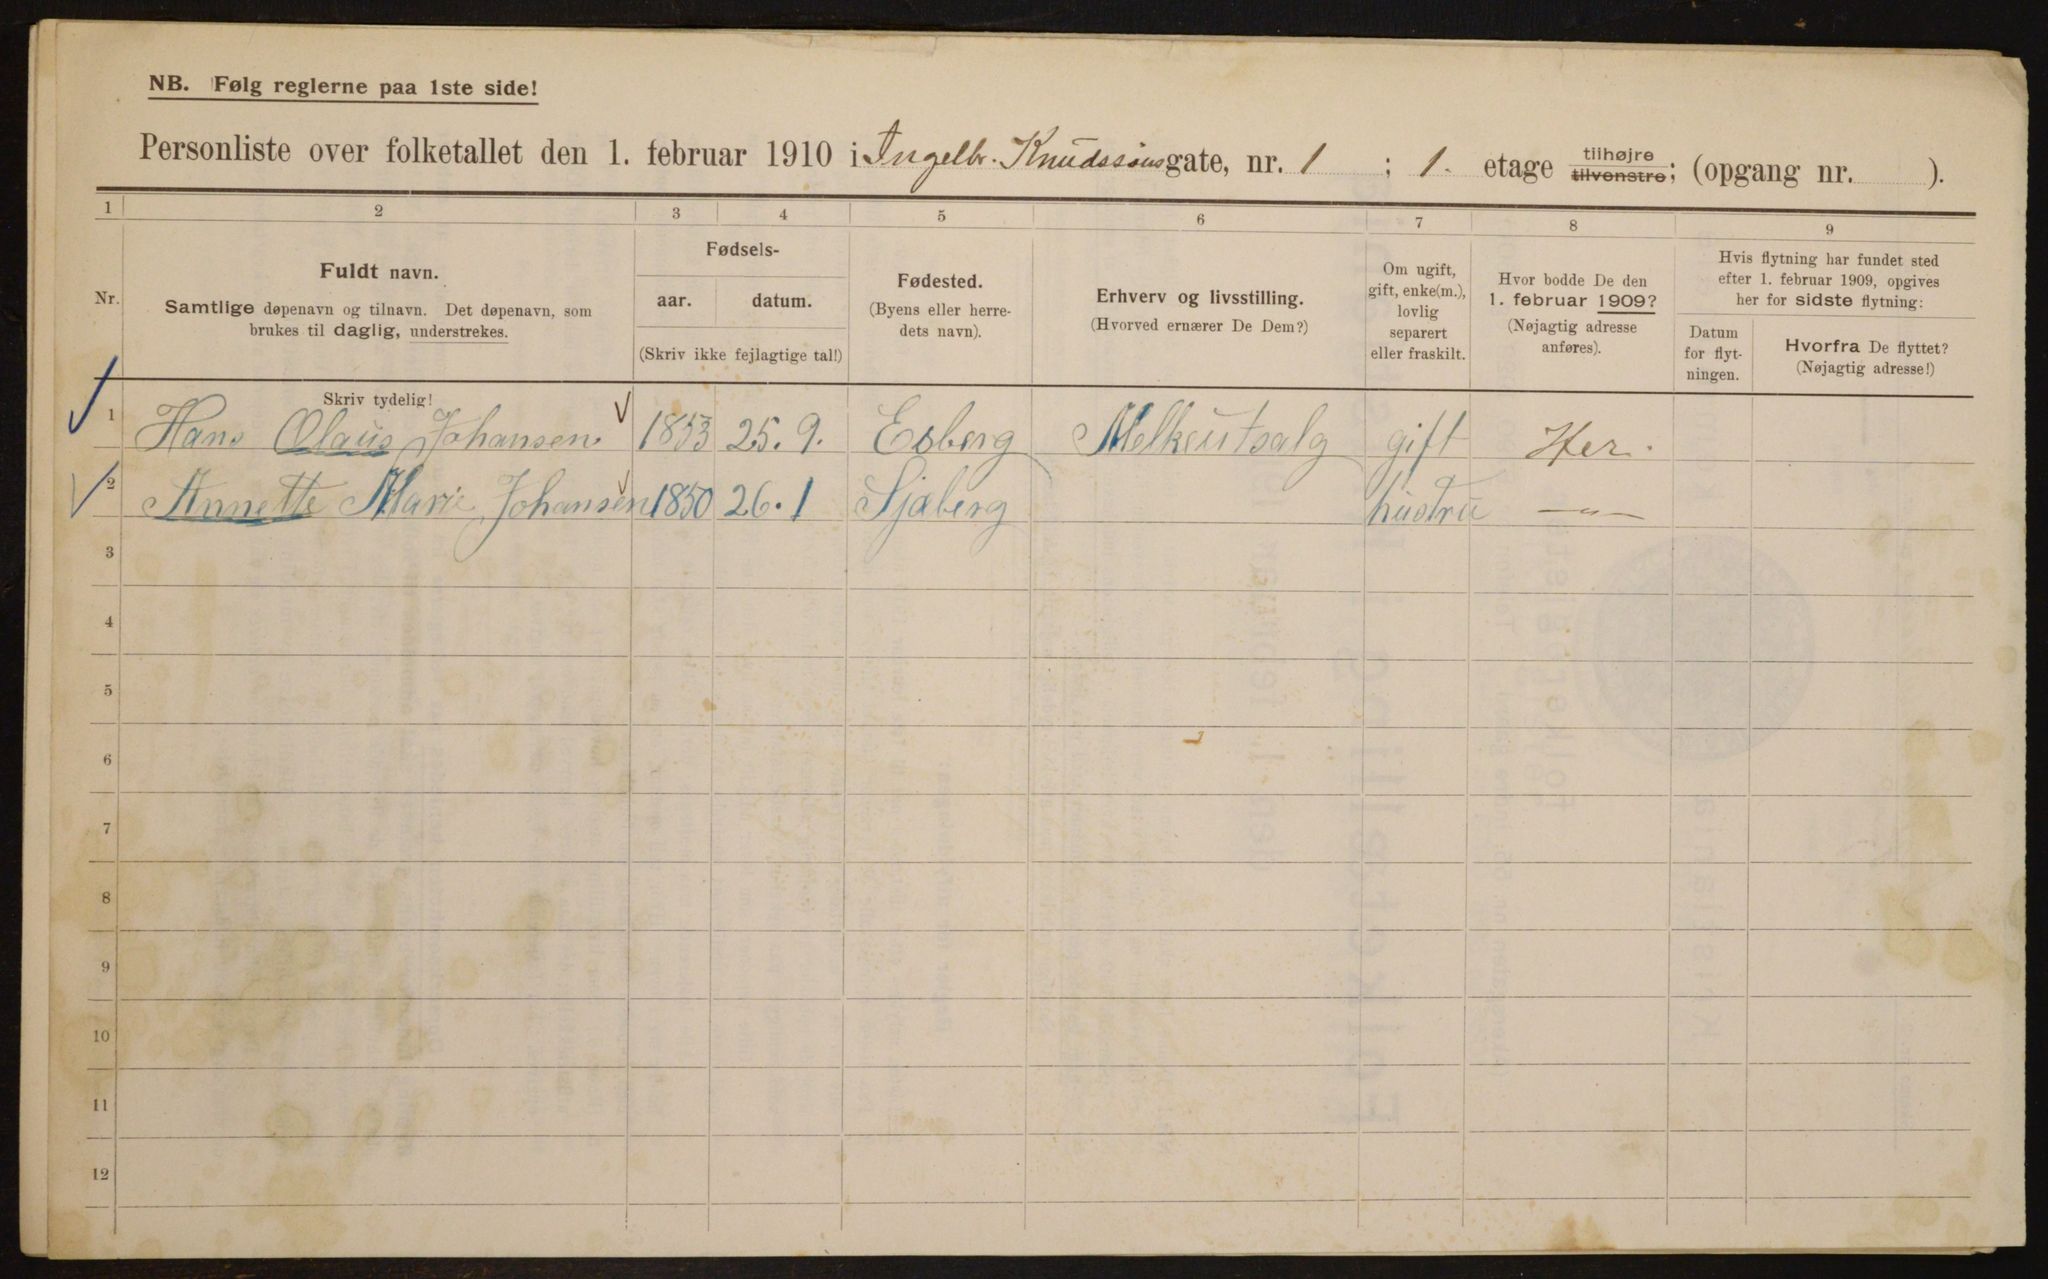 NB. Følg reglerne paa 1ste side!
Personliste over folketallet den 1. februar 1910 i Ingelbr. Knudssønsgate, nr. 1 ; 1. etage tilhøjre tilvenstre; (opgang nr. ).
1 2 3 4 5 6 7 8 9
Nr.
Fuldt navn.
Samtlige døpenavn og tilnavn. Det døpenavn, som
brukes til daglig, understrekes.
Fødsels-
aar. datum.
(Skriv ikke fejlagtige tal!)
Fødested.
(Byens eller herre-
dets navn).
Erhverv og livsstilling.
(Hvorved ernærer De Dem?)
Om ugift,
gift, enke(m.),
lovlig
separert
eller fraskilt.
Hvor bodde De den
1. februar 1909?
(Nøjagtig adresse
anføres).
Hvis flytning har fundet sted
efter 1. februar 1909, opgives
her for sidste flytning:
Datum
for flyt-
ningen.
Hvorfra De flyttet?
(Nøjagtig adresse!)
Skriv tydelig!
1 Hans Olaus Johansen 1853 25.9. Esberg Melkeutsalg gift Her.
2 Annette Marie Johansen 1850 26.1 Sjaberg hustru —"—
3
4
5
6
7
8
9
10
11
12